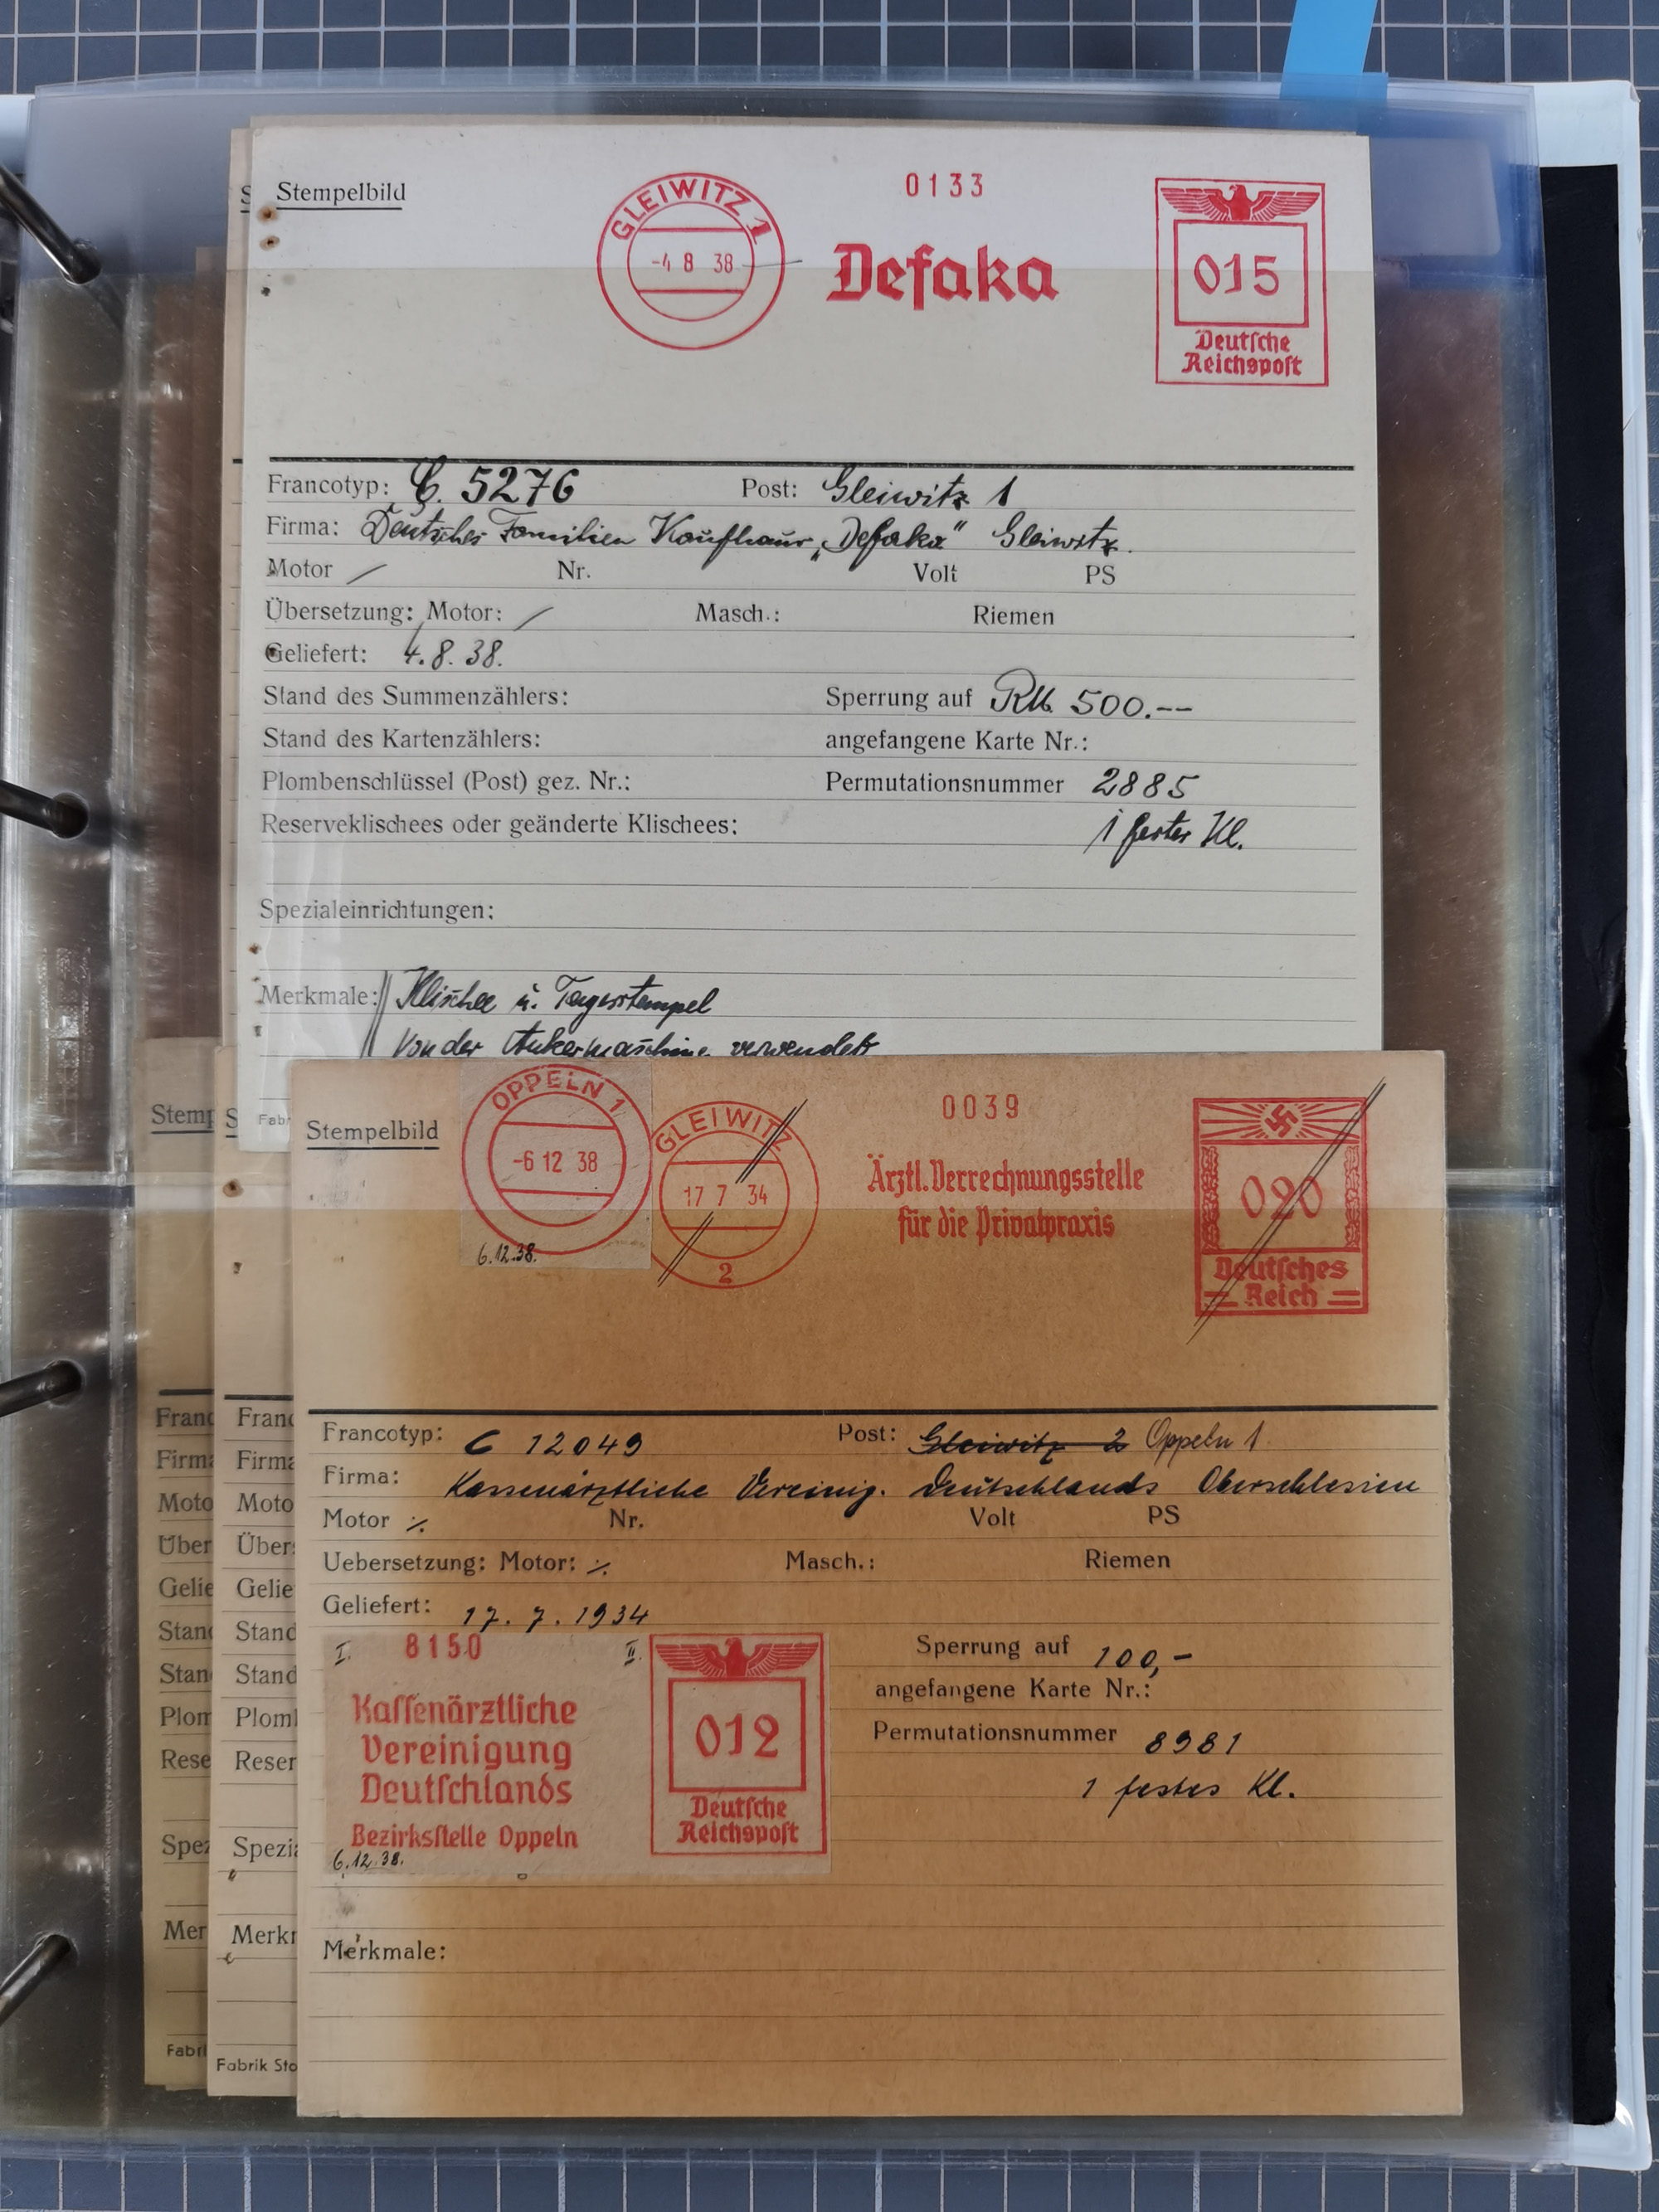 S Stempelbild
GLEIWITZ 1
-4 8 38
0133
Defaka
015
Deutsche
Reichspost
Francotyp: C. 5276 Post: Gleiwitz 1
Firma: Deutsches Familien Kaufhaus „Defaka" Gleiwitz.
Motor / Nr. Volt PS
Übersetzung: Motor: / Masch.: Riemen
Geliefert: 4.8.38.
Stand des Summenzählers: Sperrung auf RM 500.--
Stand des Kartenzählers: angefangene Karte Nr.:
Plombenschlüssel (Post) gez. Nr.: Permutationsnummer 2885
Reserveklischees oder geänderte Klischees: 1 festes Kl.
Spezialeinrichtungen:
Merkmale: Klischee u. Tagesstempel
von der Ankermaschine verwendet
Stemp S Fabr
Stempelbild
OPPELN 1
-6 12 38
6.12.38.
GLEIWITZ
17 7 34
2
0039
Ärztl. Verrechnungsstelle
für die Privatpraxis
020
Deutsches
Reich
Franc Franc Francotyp: C 12049 Post: Gleiwitz 2 Oppeln 1
Firma Firma Firma: Kassenärztliche Vereinig. Deutschlands Oberschlesien
Moto Moto Motor ./. Nr. Volt PS
Über Über Uebersetzung: Motor: ./. Masch.: Riemen
Gelie Gelie Geliefert: 17.7.1934
Stand Stand I. 8150 II. Sperrung auf 100,-
Stan Stand angefangene Karte Nr.:
Plom Plom Permutationsnummer 8981
Rese Reser 1 festes Kl.
Kassenärztliche
Vereinigung
Deutschlands
Bezirksstelle Oppeln
6.12.38.
012
Deutsche
Reichspost
Spez Spezia
Mer Merkr Merkmale:
Fabri
Fabrik Sto